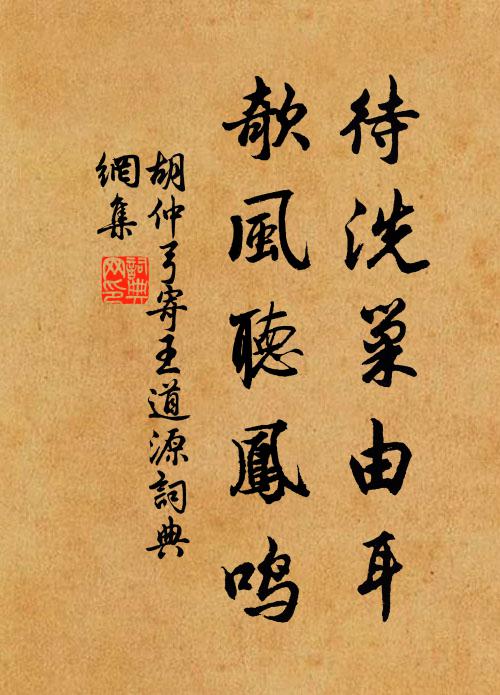 待洗巢由耳
欹風聽鳳鳴
胡仲弓寄王道源詞典
網集
詞典網印